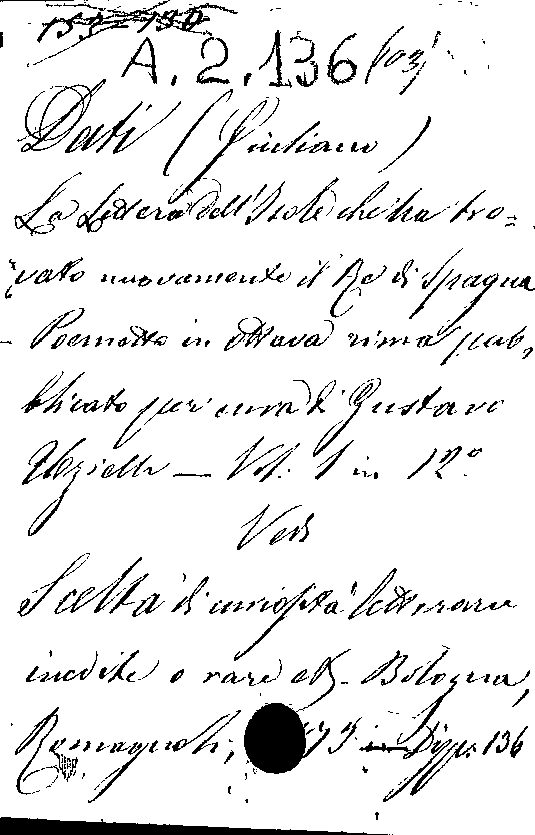 153-130
A. 2. 136 (03)
Dati (Giuliano)
La Lettera dell'Isole che ha tro=
vato nuovamente il Re di Spagna
- Poemetto in ottava rima pub,
blicato per cura di Gustavo
Uzielli — Vol. 1 in 12°
Vedi
Scelta di curiosità letterarie
inedite o rare etc. Bologna,
Romagnoli, 73 in Disp. 136